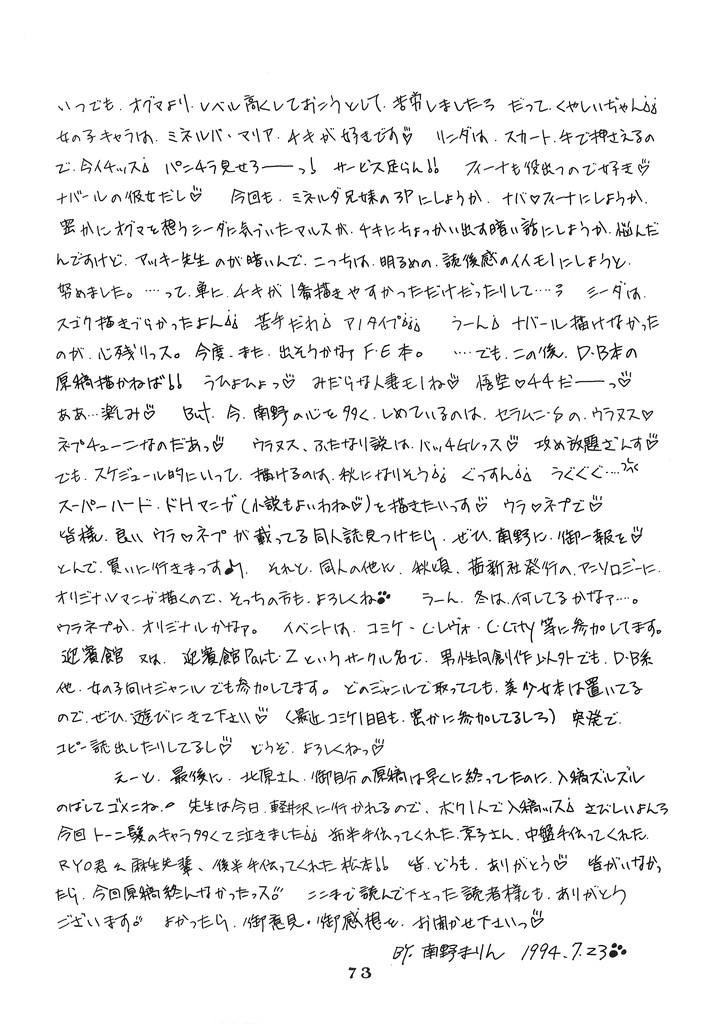 いつでも、オグマより、レベル高くしておこうとして、苦労しましたろ だって、くやしいぢゃん♩♩
女の子キャラは、ミネルバ・マリア・チキが好きです♡ リンダは、スカート、手で押さえるの
で、今イチッス♩ パンチラ見せろ——っ! サービス足らん!! フィーナも役出つので好き♡
ナバールの彼女だし♡ 今回も、ミネルダ兄妹の3Pにしようか、ナバ♡フィーナにしようか、
密かにオグマを想うシーダに気づいたマルスが、チキにちょっかい出す暗い話にしようか、悩んだ
んですけど、アッキー先生のが暗いんで、こっちは、明るめの、読後感のイイモノにしようと、
努めました。……って、単に、チキが1番描きやすかっただけだったりして……? シーダは、
スゴク描きづらかったよん♩♩ 苦手だわ♩ アノタイプ♩♩♩ うーん♩ ナバール描けなかった
のが、心残りっス。今度、また、出そうかなァ F・E本。 ……でも、この後、D・B本の
原稿描かねば!! うひょひょっ♡ みだらな人妻モノね♡ 悟空♡44だ——っ♡
ああ…楽しみ♡ But、今、南野の心を多く、しめているのは、セラムニ・Sの、ウラヌス♡
ネプチューンなのだあっ♡ ウラヌス、ふたなり説は、バッチGレっス♡ 攻め放題ざんす♡
でも、スケジュール的にいって、描けるのは、秋になりそう♩♩ ぐっすん♩♩ うぐぐぐ……
スーパーハード・ドHマンガ(小説もよいわね♡)を描きたいっす♡ ウラ♡ネプで♡
皆様、良い ウラ♡ネプが載ってる同人誌見つけたら、ぜひ、南野に、御一報を♡
とんで、買いに行きまっす♪ それと、同人の他に、秋頃、茜新社発行の、アンソロジーに、
オリジナルマンガ描くので、そっちの方も、よろしくね うーん、冬は、何してるかなァ……。
ウラネプか、オリジナルかなァ。 イベントは、コミケ・C・レヴォ・C・City等に参加してます。
迎賓館 又は、迎賓館Part・2というサークル名で、男性向創作以外でも、D・B系
他、女の子向けジャンルでも参加してます。どのジャンルで取ってても、美少女本は置いてる
ので、ぜひ、遊びにきて下さい♡ (最近コミケ1日目も、密かに参加してるしろ) 突発で、
コピー誌出したりしてるし♡ どうぞ、よろしくねっ♡
えーと、最後に、北原さん、御自分の原稿は早くに終ってたのに、入稿ズルズル
のばしてゴメンね、 先生は今日、軽井沢に行かれるので、ボク1人で入稿ッス♩ さびしいよんろ
今回トーン髪のキャラ多くて泣きました♩♩ 前半手伝ってくれた、京子さん、中盤手伝ってくれた、
RYO君&麻生先輩、後半手伝ってくれた松本!! 皆、どうも、ありがとう♡ 皆がいなかっ
たら、今回原稿終んなかったっス!! ここまで読んで下さった読者様にも、ありがとう
ございます!! よかったら、御意見・御感想を、お聞かせ下さいっ♡
BY、南野まりん 1994.7.23
73